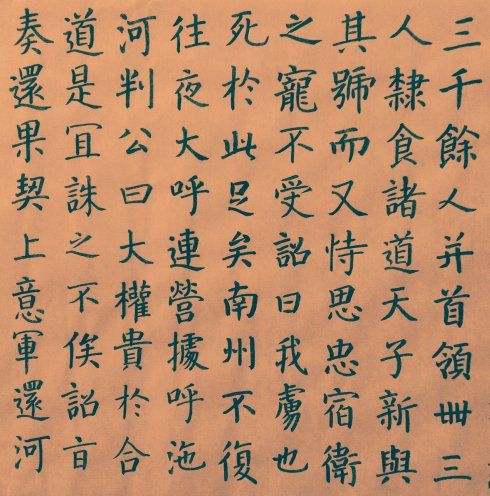 三千餘人并首領卌三
人隸食諸道天子新與
其號而又恃思忠宿衛
之寵不受詔曰我虜也
死於此足矣南州不復
往夜大呼連營據呼沲
河判公曰大權貴於合
道是冝誅之不俟詔旨
奏還果契上意軍還河